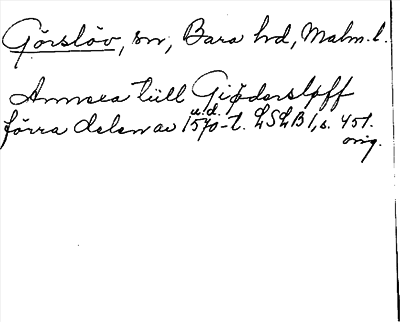 Görslöv, sn, Bara hd, Malm. l.
Annexa tüll Giödersløff
u.d.
förra delen av 1570-t. LSLB 1, s. 451.
orig.